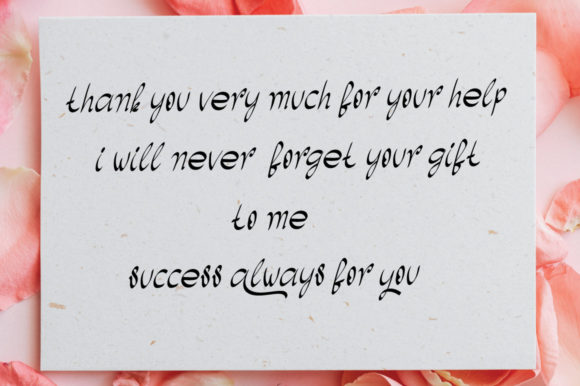 thank you very much for your help
i will never forget your gift
to me
success always for you